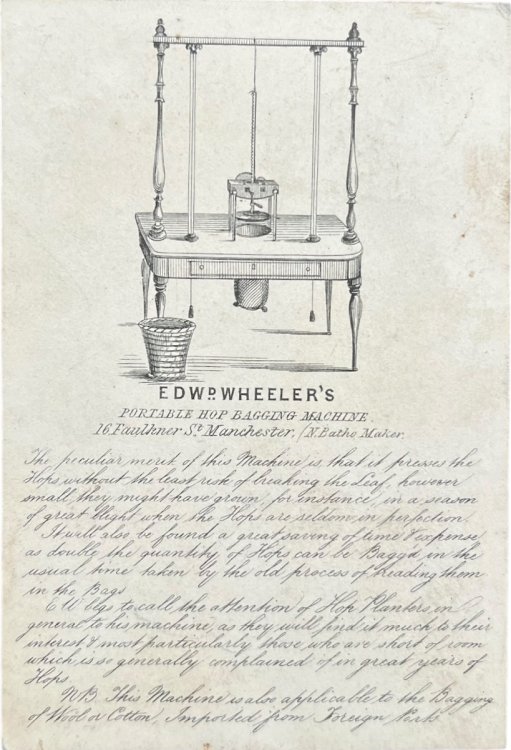 EDWD. WHEELER'S
PORTABLE HOP BAGGING MACHINE
16, Faulkner St. Manchester, (N. Batho Maker.
The peculiar merit of this Machine is, that it presses the
Hops, without the least risk of breaking the Leaf, however
small, they might have grown, for instance, in a season
of great blight when the Hops are seldom in perfection.
It will also be found a great saving of time & expense,
as double the quantity of Hops can be Bagg'd in the
usual time taken by the old process of treading them
in the Bags
E W begs to call the attention of Hop Planters, in
general to his machine, as they will find it much to their
interest & most particularly those who are short of room
which is so generally complained of in great years of
Hops
NB. This Machine is also applicable to the Bagging
of Wool or Cotton, Imported from Foreign Ports